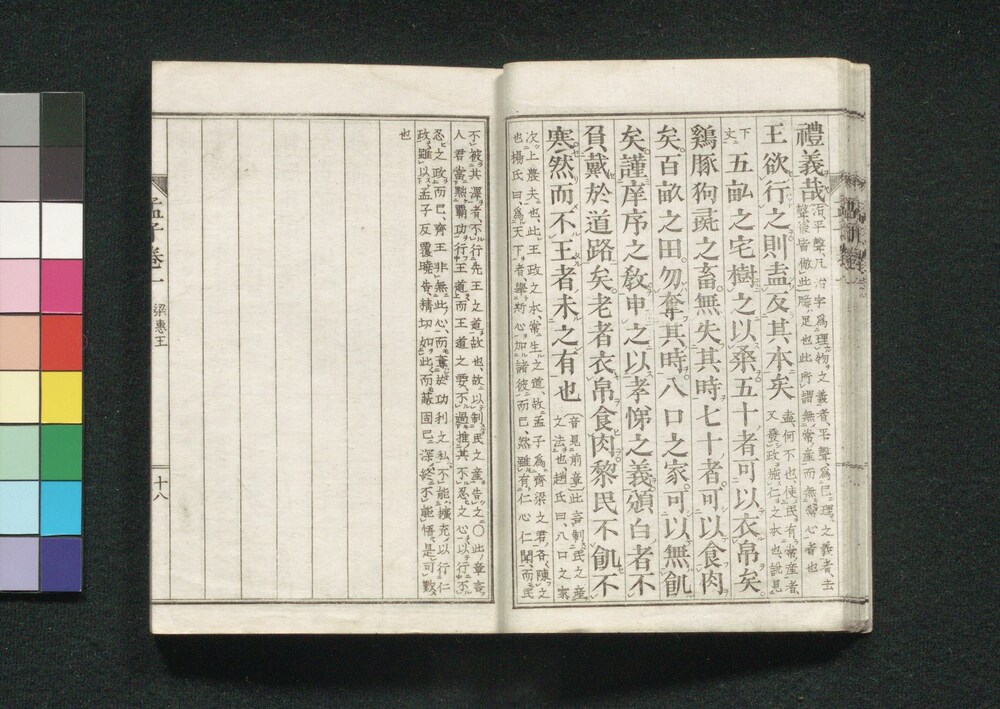 禮義哉治平聲凡治字爲理物之義者平聲爲已理之義者去
聲後皆倣此贍足也此所謂無常產而無常心者也
王欲行之則盍反其本矣盍何不也使民有常產者
又發政施仁之本也說見
下文
五畝之宅樹之以桑五十者可以衣帛矣
雞豚狗彘之畜無失其時七十者可以食肉
矣百畝之田勿奪其時八口之家可以無飢
矣謹庠序之敎申之以孝悌之義頒白者不
負戴於道路矣老者衣帛食肉黎民不飢不
寒然而不王者未之有也音見前章此言制民之產
之法也趙氏曰八口之家
次上農夫也此王政之本常生之道故孟子爲齊梁之君各陳之
也楊氏曰爲天下者舉斯心加諸彼而已然雖有仁心仁聞而民
不被其澤者不行先王之道故也故以制民之產告之○此章言
人君當黜霸功行王道而王道之要不過推其不忍之心以行不
忍之政而已齊王非無此心而奪於功利之私不能擴充以行仁
政雖以孟子反覆曉告精切如此而蔽固已深終不能悟是可歎
也
孟子卷一
梁惠王
十八